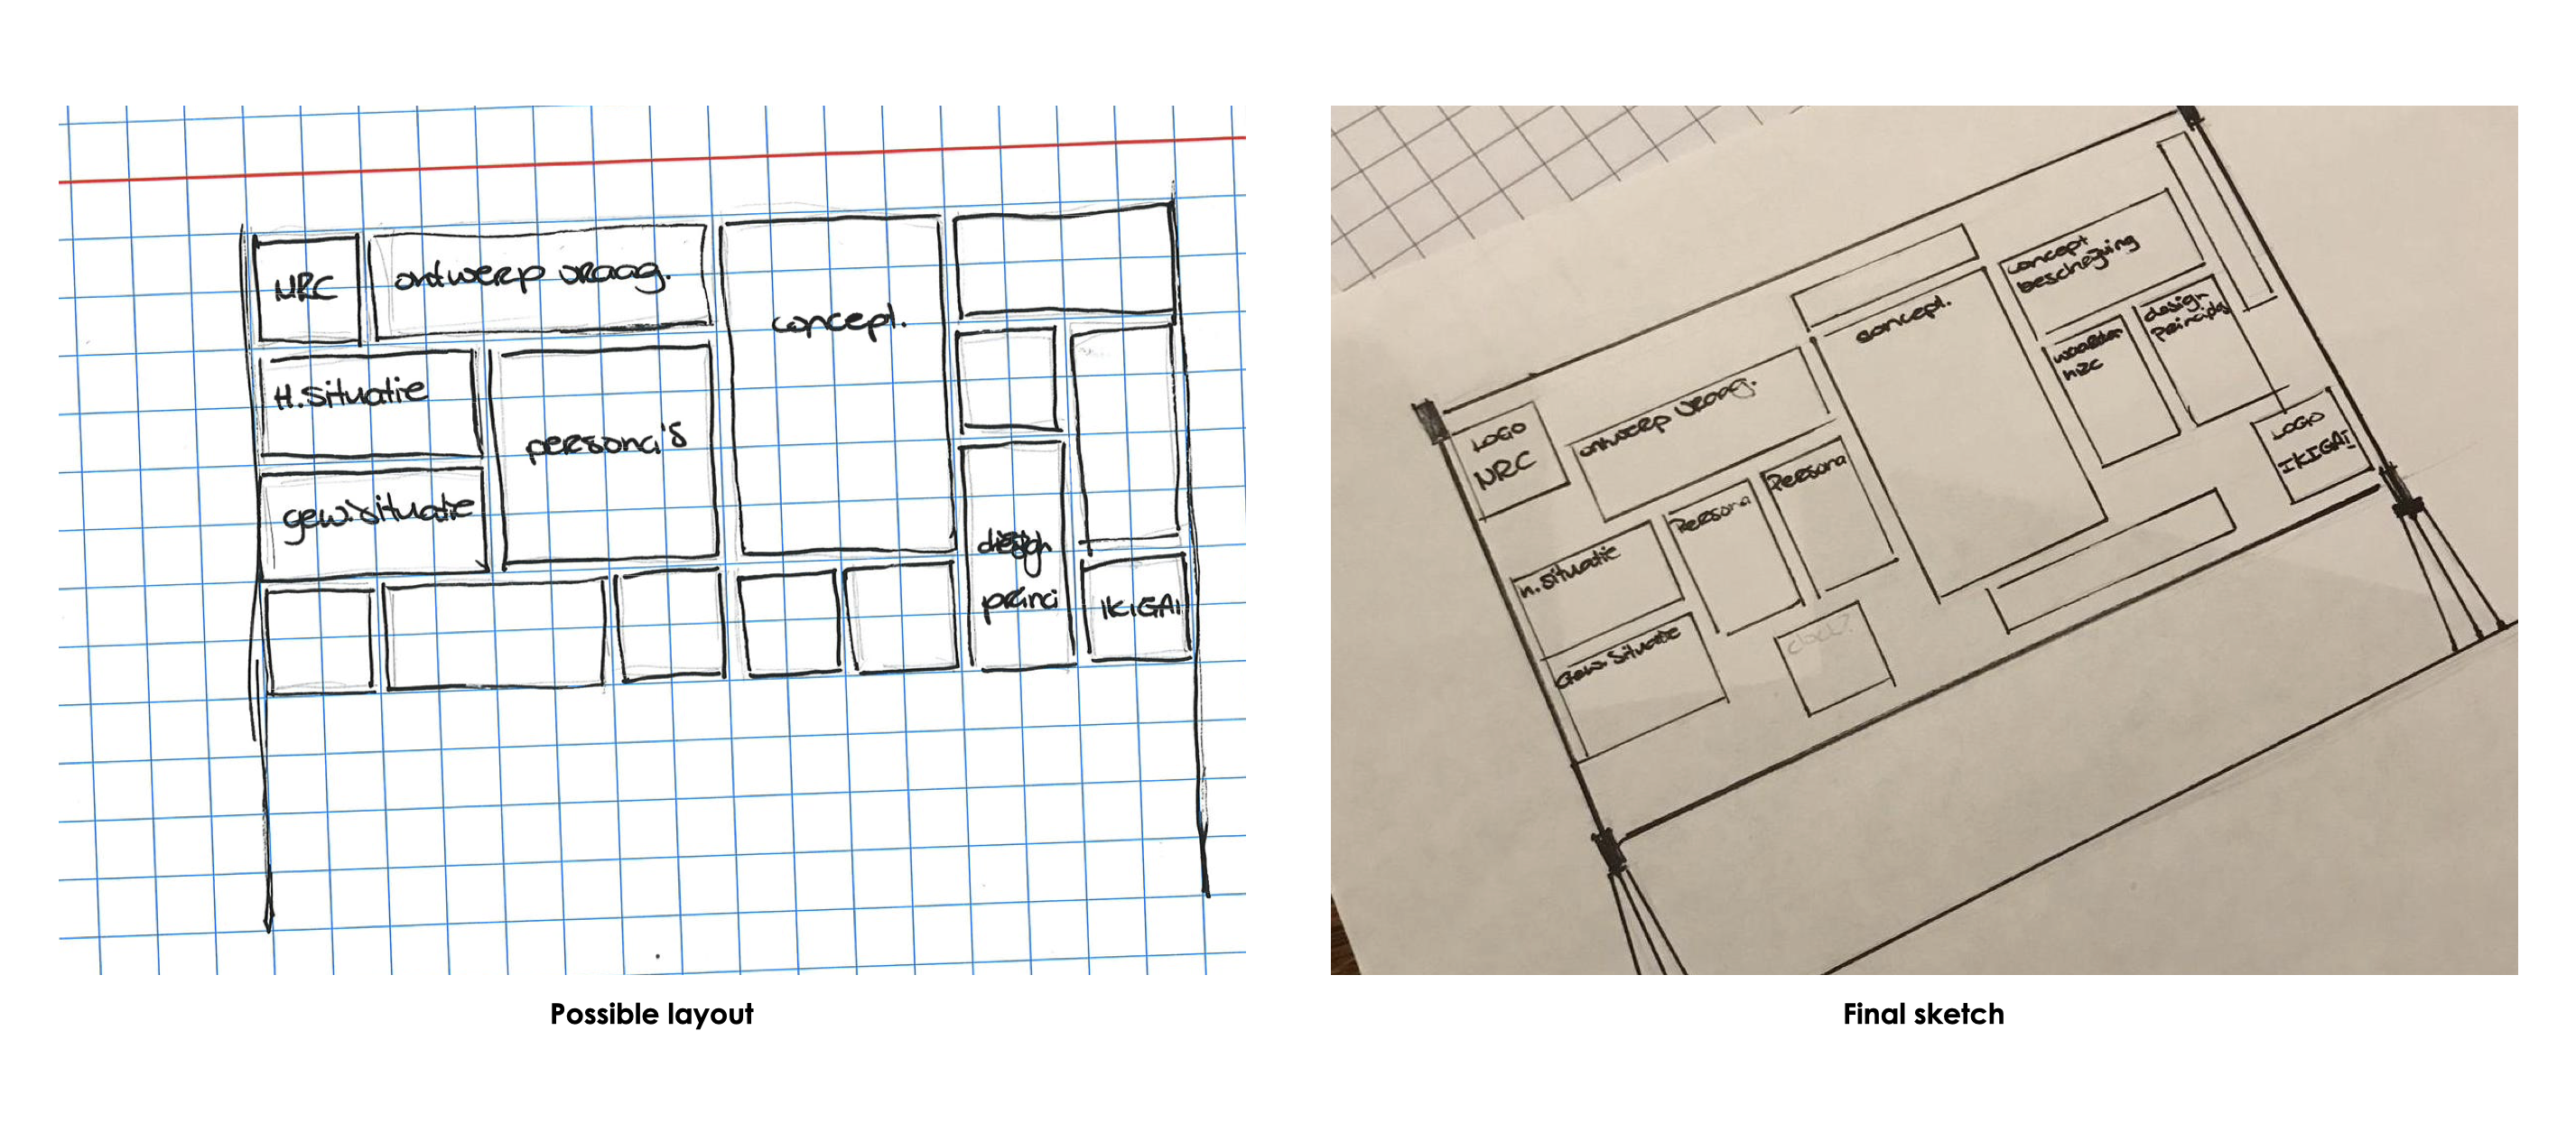 NRC
ontwerp vraag.
concept.
H.situatie
persona's
gew.situatie
design
princi
IKIGAI
Possible layout
LOGO
NRC
ontwerp vraag.
concept.
concept
waarden
NRC
design
principles
LOGO
IKIGAI
h.situatie
Persona
Persona
Gew. Situatie
Final sketch